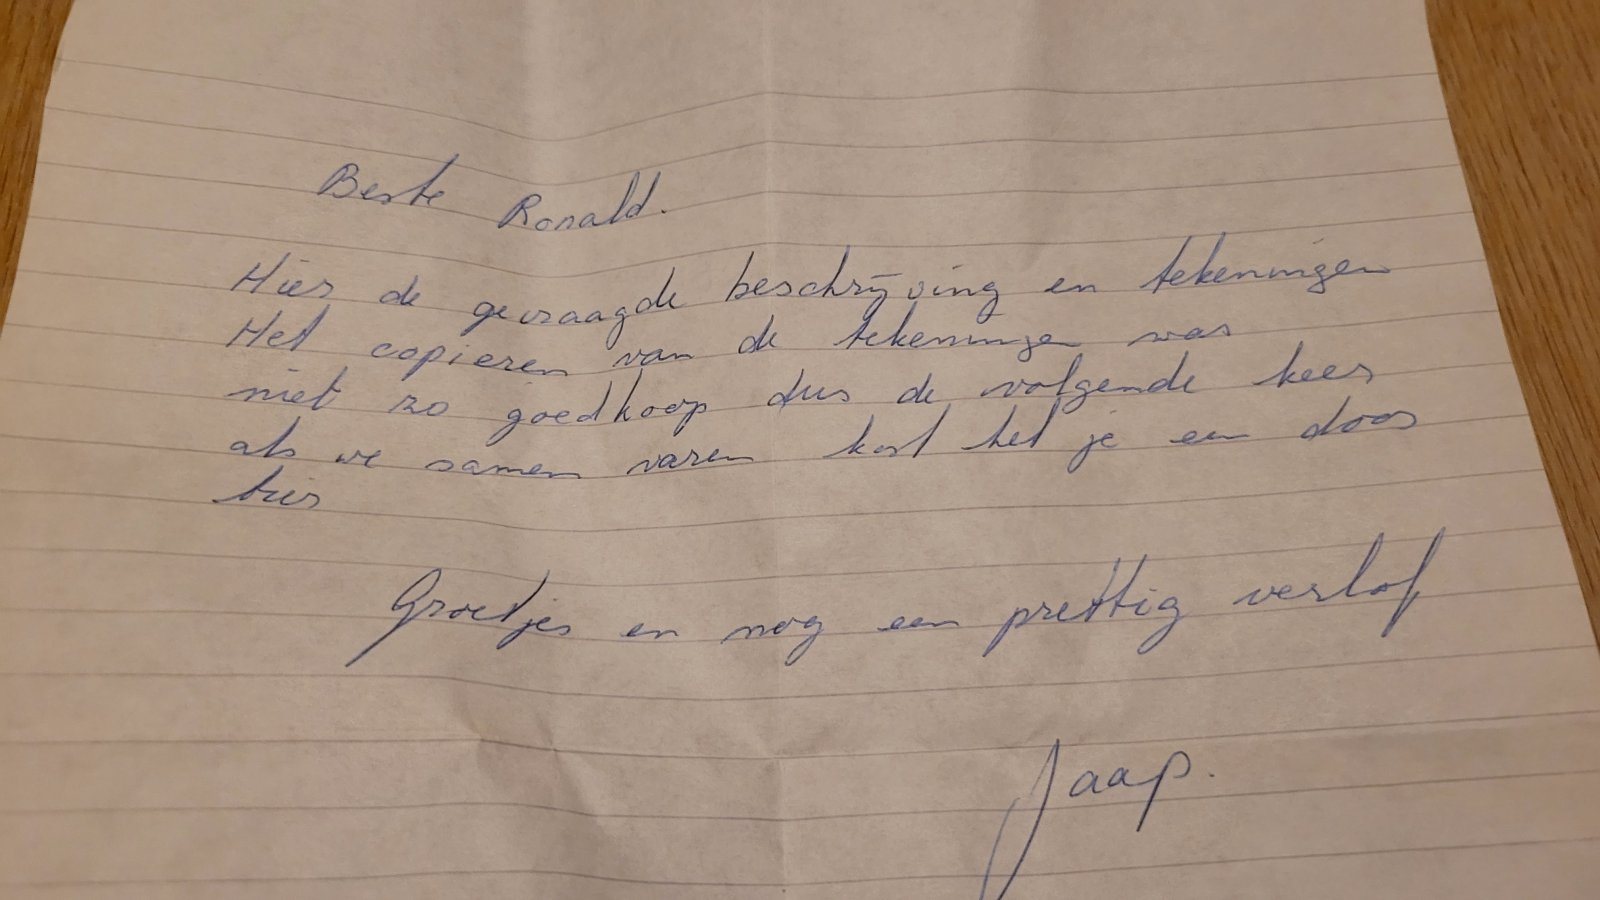 Beste Ronald.
Hier de gevraagde beschrijving en tekeningen
Het copieren van de tekeningen was
niet zo goedkoop dus de volgende keer
als we samen varen kost het je een doos
bier
Groetjes en nog een prettig verlof
Jaap.